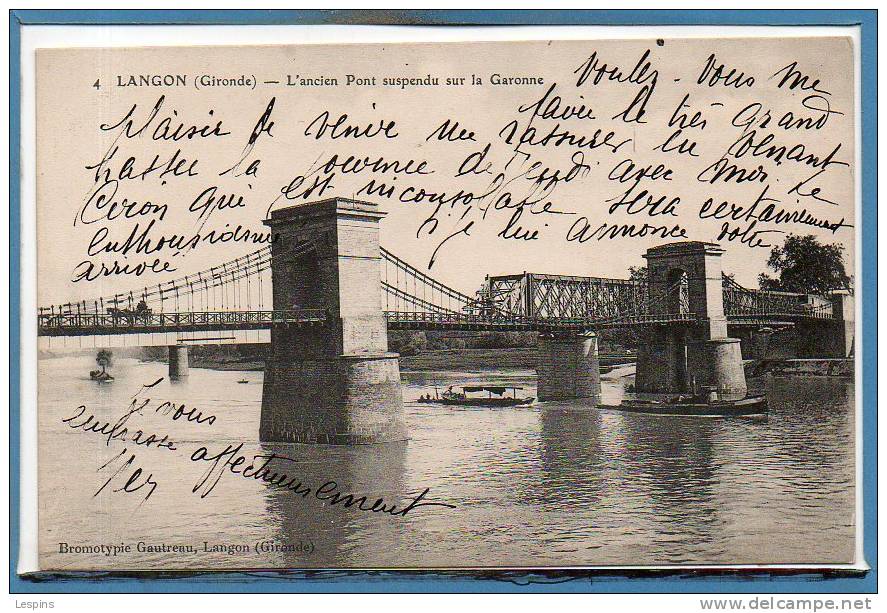 4 LANGON (Gironde) — L'ancien Pont suspendu sur la Garonne
Voulez-vous me
faire le très grand
plaisir de venir me rassurer en venant
passer la journée de jeudi avec moi. Le
Ciron qui est inconsolable sera certainement
enthousiasme si je lui annonce votre
arrivée
Je vous
embrasse
affectueusement
Bromotypie Gautreau, Langon (Gironde)
Lespins
www.delcampe.net